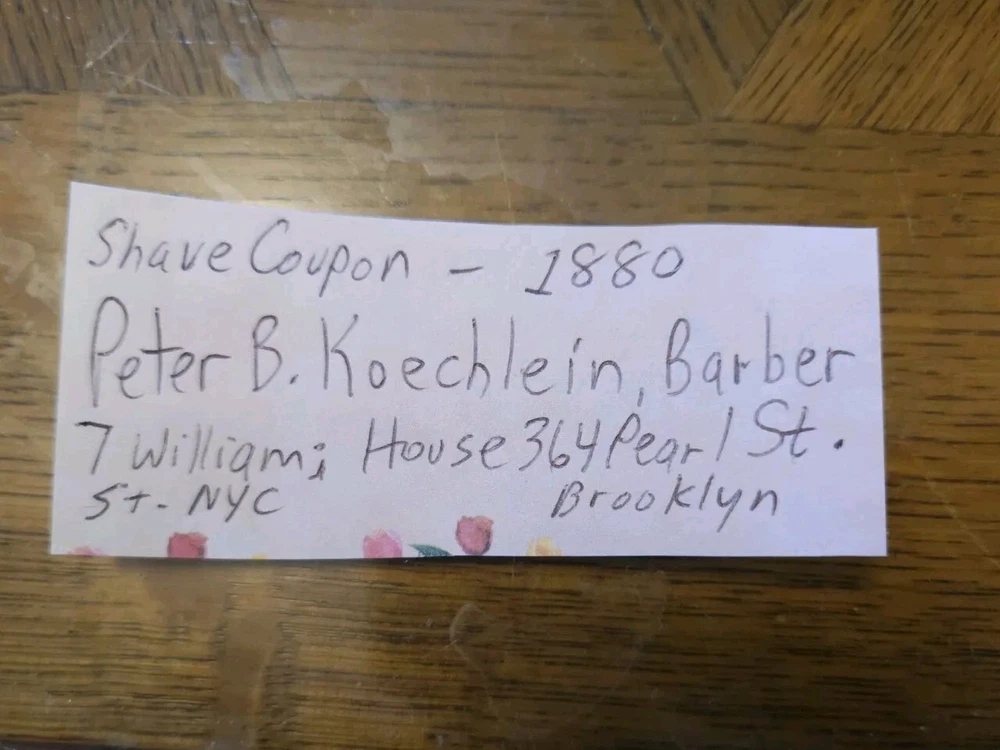 Shave Coupon - 1880
Peter B. Koechlein, Barber
7 William; House 364 Pearl St.
St. NYC Brooklyn